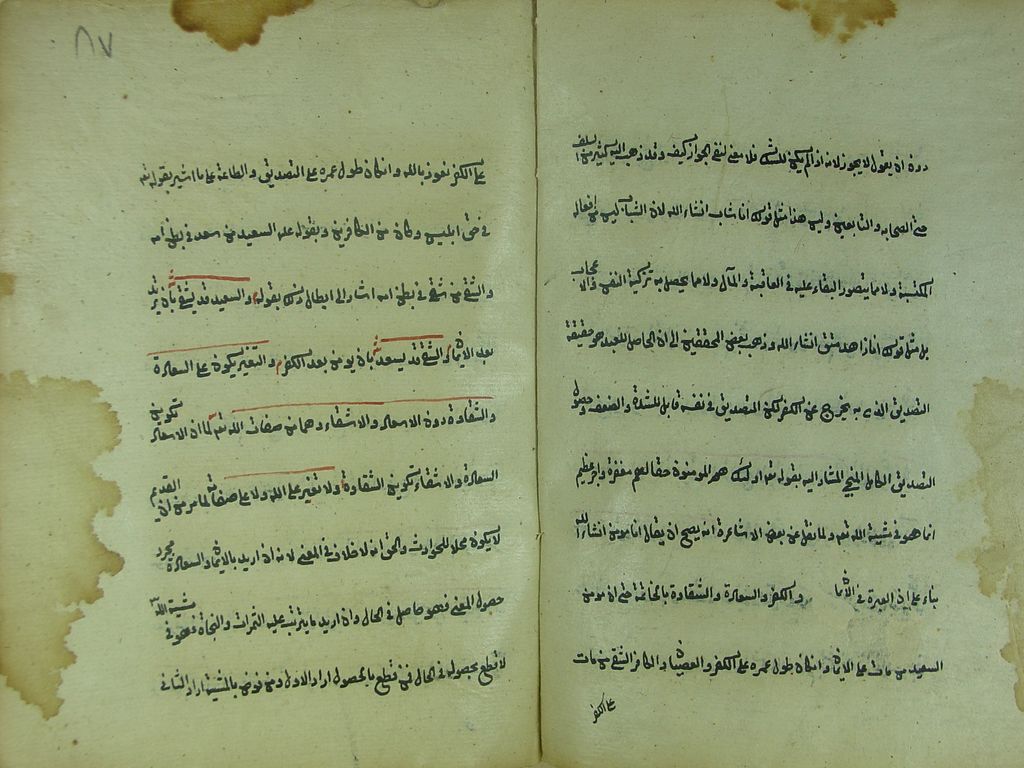 دون ان يقول لا يجوز لانه اذا لم يكن للشك فلا معنى لنفى الجواز كيف وقد ذهب اليه كثير من السلف
من الصحابه والتابعين وليس هذا مثل قولك انا شاب انشاء الله لان الشباب ليس من افعاله
المكتسبة ولا مما يتصور البقاء عليه فى العاقبة والمآل ولا مما يحصل به تزكية النفس والاعجاب
بل مثل قولك انا زاهد متق انشاء الله وذهب بعض المحققين الى ان الحاصل للعبد هو حقيقة
التصديق الذى به يخرج عن الكفر لكن التصديق فى نفسه قابل للشدة والضعف وحصول
التصديق الكامل المنجى المشار اليه بقوله تعه اولئك هم المومنون حقا لهم مغفرة واجر عظيم
انما هو فى مشية الله تعه ولما نقل عن بعض الاشاعرة انه يصح ان يقال انا مومن انشاء الله
بناء على ان العبرة فى الايمان والكفر والسعادة والشقاوة بالخاتمة حتى ان مومن
السعيد من مات على الايمان وانكان طول عمره على الكفر والعصيان والكافر الشقى من مات
على الكفر
٨٧
على الكفر نعوذ بالله وانكان طول عمره على التصديق والطاعة على ما اشير بقوله تعه
فى حق ابليس وكان من الكافرين وبقوله عله السعيد من سعد فى بطن امه
والشقى من شقى فى بطن امه اشار الى ابطال ذلك بقوله والسعيد قد يشقى بان يرتد
بعد الايمان والشقى قد يسعد بان يومن بعد الكفر والتغير يكون على السعادة
والشقاوة دون الاسعاد والاشقاء وهما من صفات الله تعه لما ان الاسعاد تكوين
السعادة والاشقاء تكوين الشقاوة ولا تغير على الله ولا على صفاته لما مر من ان القديم
لا يكون محلا للحوادث والحق انه لا خلاف فى المعنى لانه ان اريد بالايمان والسعادة مجرد
حصول المعنى فهو حاصل فى الحال وان اريد ما يترتب عليه الثمرات والنجاة فهو فى مشية الله
لا قطع بحصوله فى الحال فمن قطع بالحصول اراد الاول ومن فوض بالمشية اراد الثانى